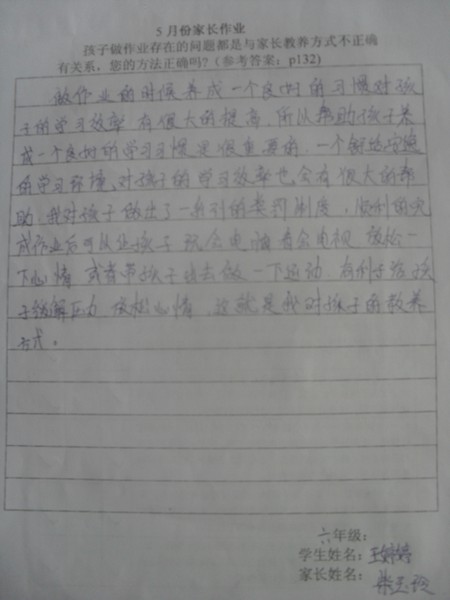 5月份家长作业
孩子做作业存在的问题都是与家长教养方式不正确
有关系，您的方法正确吗？（参考答案：p132）
做作业的时候养成一个良好的习惯对孩
子的学习效率有很大的提高，所以帮助孩子养
成一个良好的学习习惯是很重要的，一个舒适
的学习环境，对孩子的学习效率也会有很大的帮
助，我对孩子做出了一系列的奖罚制度，顺利的完
成作业后可以让孩子玩会电脑看会电视放松一
下心情，或者带孩子出去做一下运动，有利于给孩
子缓解压力放松心情，这就是我对孩子的教养
方式。
六年级：
学生姓名：王婷婷
家长姓名：